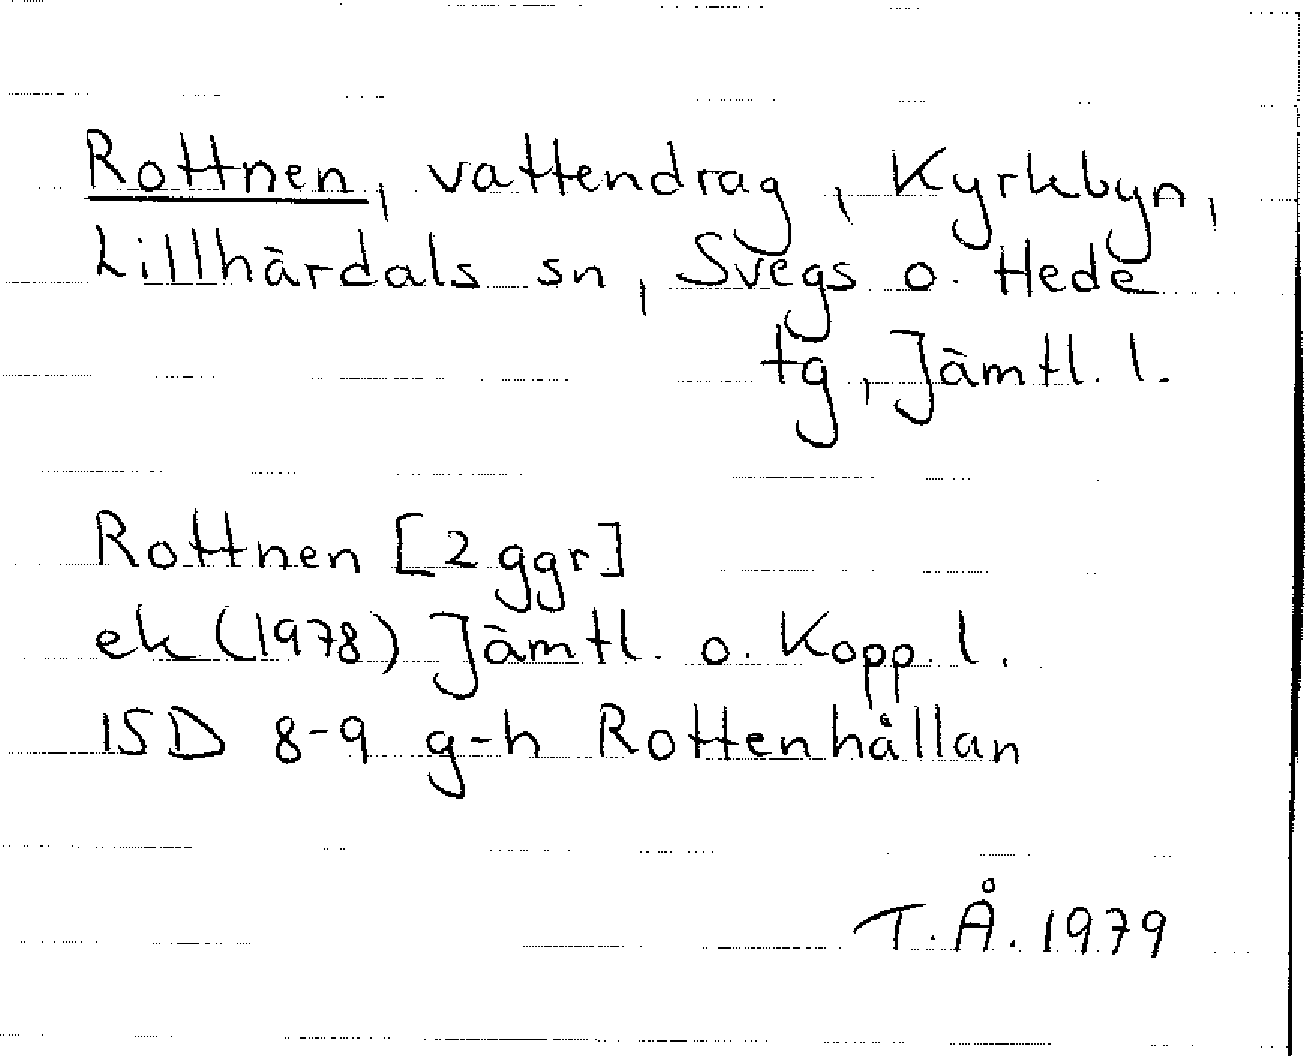 Rottnen, vattendrag, Kyrkbyn,
Lillhärdals sn, Svegs o. Hede
tg, Jämtl. l.
Rottnen [2 ggr]
ek (1978) Jämtl. o. Kopp. l.
15D 8-9 g-h Rottenhållan
T.Å. 1979